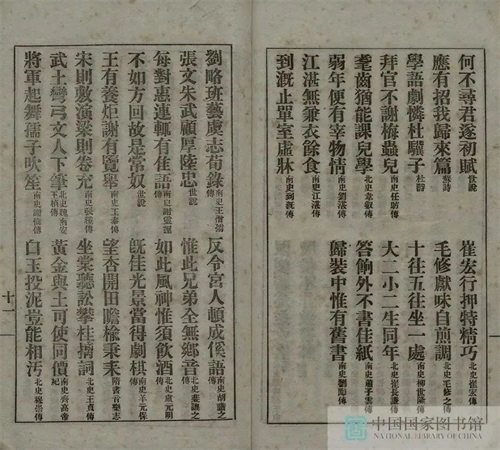 何不尋君遂初賦世說 崔宏行押特精巧北史崔宏傳
應有招我歸來篇蘇詩 毛修獻味自煎調北史毛修之傳
學語劇憐杜驥子杜詩 十往五往坐一處南史柳世隆傳
拜官不謝梅蟲兒南史任昉傳 大二小二生同年北史崔長謙傳
耄齒猶能課兒學北史韋叡傳 答餉外不書佳紙南史蕭子雲傳
弱年便有宰物情南史劉湛傳 歸裝中惟有舊書南史劉傳
江湛無兼衣餘食南史江湛傳
到溉止單室虛牀南史到溉傳
劉略班藝虞志荀錄南史王僧孺傳 反令宮人頓成傒語南史胡諧之傳
張文朱武顧厚陸忠世說 惟此兄弟全無鄉音北史裴讓之傳
每對惠連輒有佳語南史謝靈運傳 如此風神惟須飲酒北史盧元明傳
不如方回故是常奴世說 既佳光景當得劇棋南史羊元保傳
王有養炬謝有覽舉南史王泰傳 望杏開田瞻榆秉耒隋書音樂志
宋則敷演梁則卷充南史張種傳 坐棠聽訟攀桂摛詞北史王貞傳
武士彎弓文人下筆北史魏南安王楨傳 黃金與土可使同價南史齊高帝紀
將軍起舞孺子吹笙南史謝傳 白玉投泥豈能相汚北史傳
十一
中国国家图书馆
NATIONAL LIBRARY OF CHINA